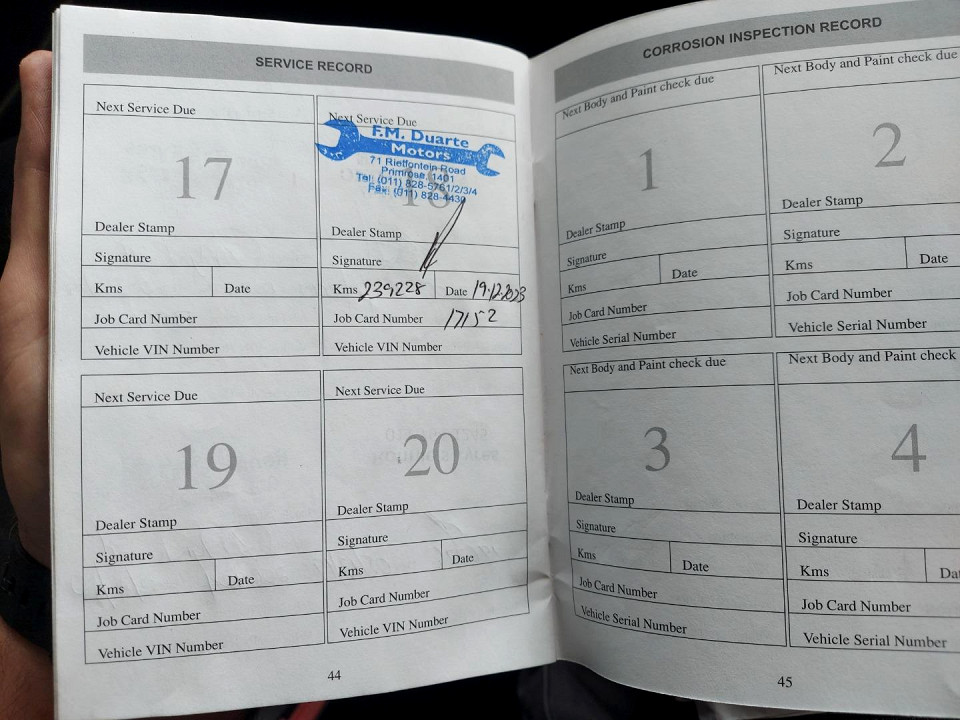 SERVICE RECORD
Next Service Due
17
Dealer Stamp
Signature
Kms Date
Job Card Number
Vehicle VIN Number
Next Service Due
F.M. Duarte
Motors
71 Rietfontein Road
Primrose, 1401
Tel: (011) 828-5761/2/3/4
Fax: (011) 828-4430
18
Dealer Stamp
Signature
Kms 239228 Date 19.12.2023
Job Card Number 17152
Vehicle VIN Number
Next Service Due
19
Dealer Stamp
Signature
Kms Date
Job Card Number
Vehicle VIN Number
Next Service Due
20
Dealer Stamp
Signature
Kms Date
Job Card Number
Vehicle VIN Number
44
CORROSION INSPECTION RECORD
Next Body and Paint check due
1
Dealer Stamp
Signature
Kms Date
Job Card Number
Vehicle Serial Number
Next Body and Paint check due
2
Dealer Stamp
Signature
Kms Date
Job Card Number
Vehicle Serial Number
Next Body and Paint check due
3
Dealer Stamp
Signature
Kms Date
Job Card Number
Vehicle Serial Number
Next Body and Paint check
4
Dealer Stamp
Signature
Kms
Job Card Number
Vehicle Serial Number
45